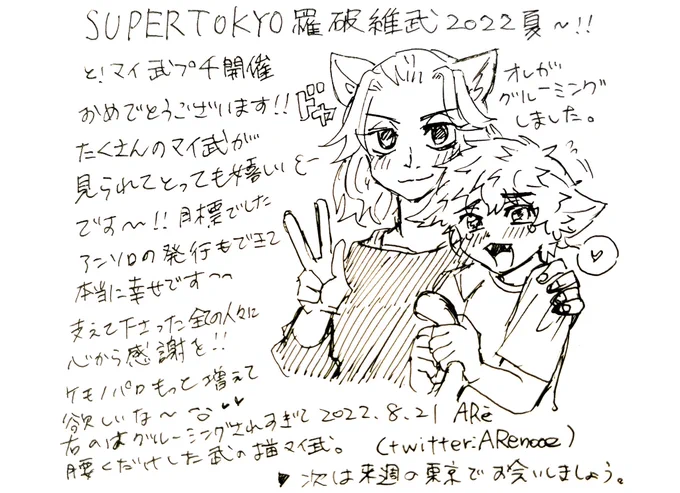 SUPERTOKYO羅破維武2022夏〜!!
と!マイ武プチ開催
おめでとうございます!!
たくさんのマイ武が
見られてとっても嬉しい
です〜〜!!目標でした
アンソロの発行もできて
本当に幸せです〜〜
支えて下さった全ての人々に
心から感謝を!!
ケモノパロもっと増えて
欲しいな〜
右のはグルーミングされすぎて
腰くだけした武の描マイ武。
ドヤ
オレが
グルーミング
しました。
♡
2022.8.21 ARe
(twitter:ARenooz)
次は来週の東京でお会いしましょう。